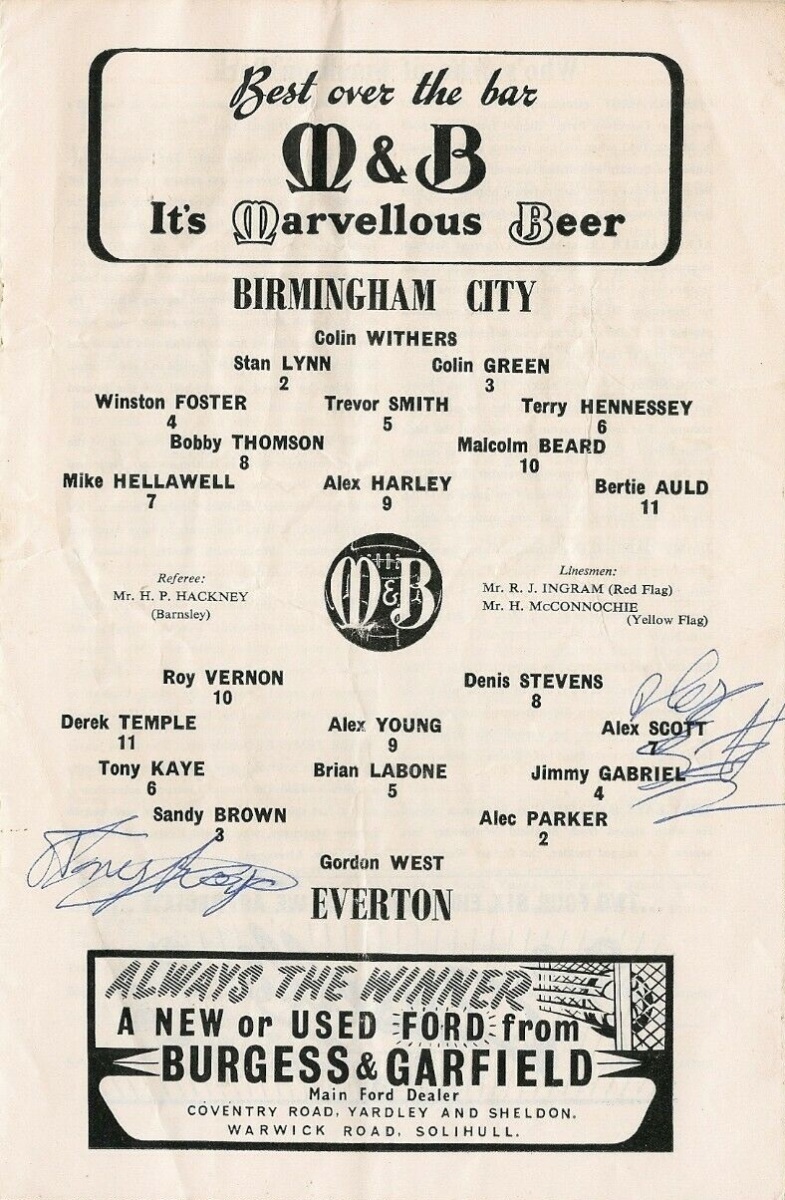 Best over the bar
M&B
It's Marvellous Beer
BIRMINGHAM CITY
Colin WITHERS
Stan LYNN Colin GREEN
2 3
Winston FOSTER Trevor SMITH Terry HENNESSEY
4 5 6
Bobby THOMSON Malcolm BEARD
8 10
Mike HELLAWELL Alex HARLEY Bertie AULD
7 9 11
Referee:
Mr. H. P. HACKNEY
(Barnsley)
M&B
Linesmen:
Mr. R. J. INGRAM (Red Flag)
Mr. H. McCONNOCHIE
(Yellow Flag)
Roy VERNON Denis STEVENS
10 8
Derek TEMPLE Alex YOUNG Alex SCOTT
11 9 7
Alex Scott
Tony KAYE Brian LABONE Jimmy GABRIEL
6 5 4
Sandy BROWN Alec PARKER
3 2
Tony Kaye
Gordon WEST
EVERTON
ALWAYS THE WINNER
A NEW or USED FORD from
BURGESS & GARFIELD
Main Ford Dealer
COVENTRY ROAD, YARDLEY AND SHELDON.
WARWICK ROAD, SOLIHULL.